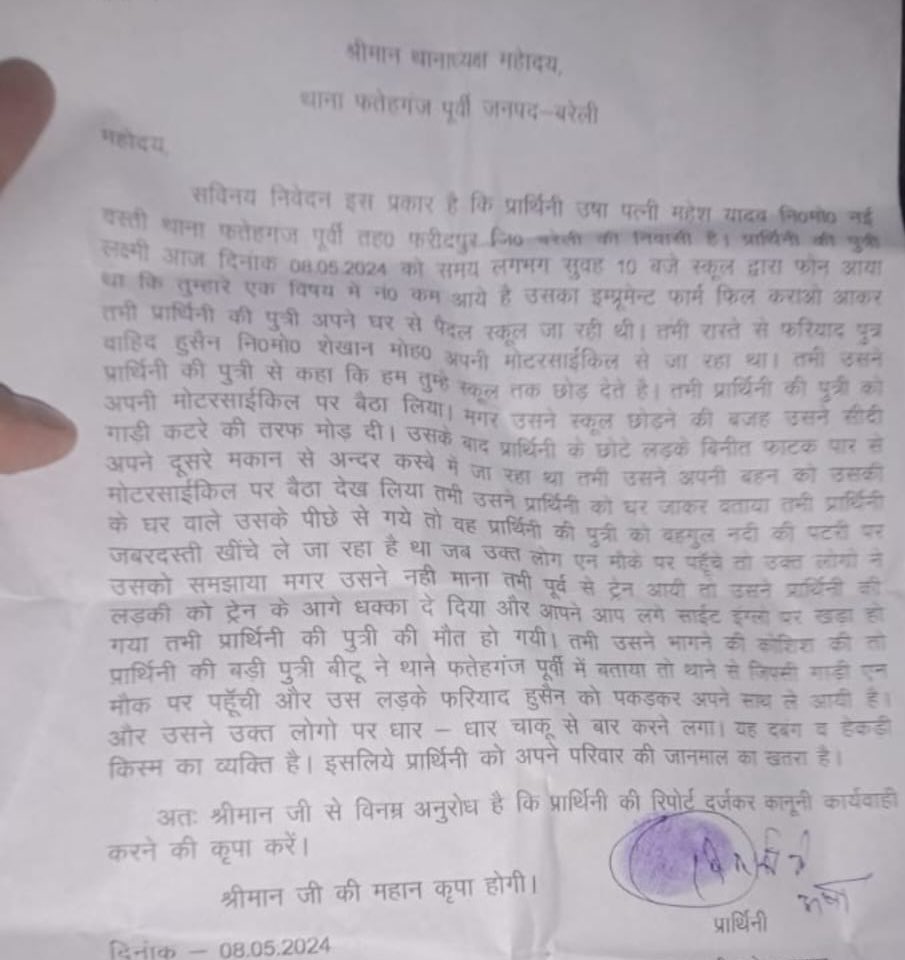 श्रीमान थानाध्यक्ष महोदय,
थाना फतेहगंज पूर्वी जनपद–बरेली
महोदय,
सविनय निवेदन इस प्रकार है कि प्रार्थिनी उषा पत्नी महेश यादव नि०मो० नई
वस्ती थाना फतेहगंज पूर्वी तह० फरीदपुर जि० बरेली की निवासी है। प्रार्थिनी की पुत्री
लक्ष्मी आज दिनांक 08.05.2024 को समय लगभग सुवह 10 बजे स्कूल द्वारा फोन आया
था कि तुम्हारे एक विषय मे नं० कम आये है उसका इम्प्रूमेन्ट फार्म फिल कराओ आकर
तभी प्रार्थिनी की पुत्री अपने घर से पैदल स्कूल जा रही थी। तभी रास्ते से फरियाद पुत्र
वाहिद हुसैन नि०मो० शेखान मोह० अपनी मोटरसाईकिल से जा रहा था। तभी उसने
प्रार्थिनी की पुत्री से कहा कि हम तुम्हे स्कूल तक छोड़ देते है। तभी प्रार्थिनी की पुत्री को
अपनी मोटरसाईकिल पर बैठा लिया। मगर उसने स्कूल छोड़ने की बजह उसने सीदी
गाड़ी कटरे की तरफ मोड़ दी। उसके बाद प्रार्थिनी के छोटे लड़के बिनीत फाटक पार से
अपने दूसरे मकान से अन्दर कस्बे मे जा रहा था तभी उसने अपनी बहन को उसकी
मोटरसाईकिल पर बैठा देख लिया तभी उसने प्रार्थिनी को घर जाकर वताया तभी प्रार्थिनी
के घर वाले उसके पीछे से गये तो वह प्रार्थिनी की पुत्री को वहगुल नदी की पटरी पर
जबरदस्ती खींचे ले जा रहा है था जब उक्त लोग एन मौके पर पहुँचे तो उक्त लोगो ने
उसको समझाया मगर उसने नही माना तभी पूर्व से ट्रेन आयी तो उसने प्रार्थिनी की
लड़की को ट्रेन के आगे धक्का दे दिया और आपने आप लगे साईट इंग्लो पर खडा हो
गया तभी प्रार्थिनी की पुत्री की मौत हो गयी। तभी उसने भागने की कोशिश की तो
प्रार्थिनी की बड़ी पुत्री बीटू ने थाने फतेहगंज पूर्वी में बताया तो थाने से जिपसी गाडी एन
मौक पर पहूँची और उस लड़के फरियाद हुसैन को पकड़कर अपने साथ ले आयी है।
और उसने उक्त लोगो पर धार – धार चाकू से बार करने लगा। यह दबंग व हेकडी
किस्म का व्यक्ति है। इसलिये प्रार्थिनी को अपने परिवार की जानमाल का खतरा है।
अतः श्रीमान जी से विनम्र अनुरोध है कि प्रार्थिनी की रिपोर्ट दर्जकर कानूनी कार्यवाही
करने की कृपा करें।
श्रीमान जी की महान कृपा होगी।
प्रार्थिनी
दिनांक – 08.05.2024